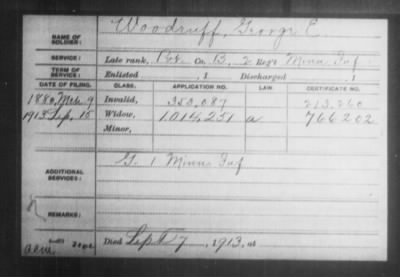 NAME OF SOLDIER: Woodruff, George E.
SERVICE: Late rank, Pvt. Co. B, 2 Reg't Minn Inf
TERM OF SERVICE: Enlisted , 1 Discharged , 1
DATE OF FILING. CLASS. APPLICATION NO. LAW CERTIFICATE NO.
1880, Mch. 9 Invalid, 353,087 213,260
1913, Sep. 15 Widow, 1,014,251 a 766,202
Minor,
ADDITIONAL SERVICES: G. 1 Minn Inf
REMARKS:
Died Sept 7, 1913, at